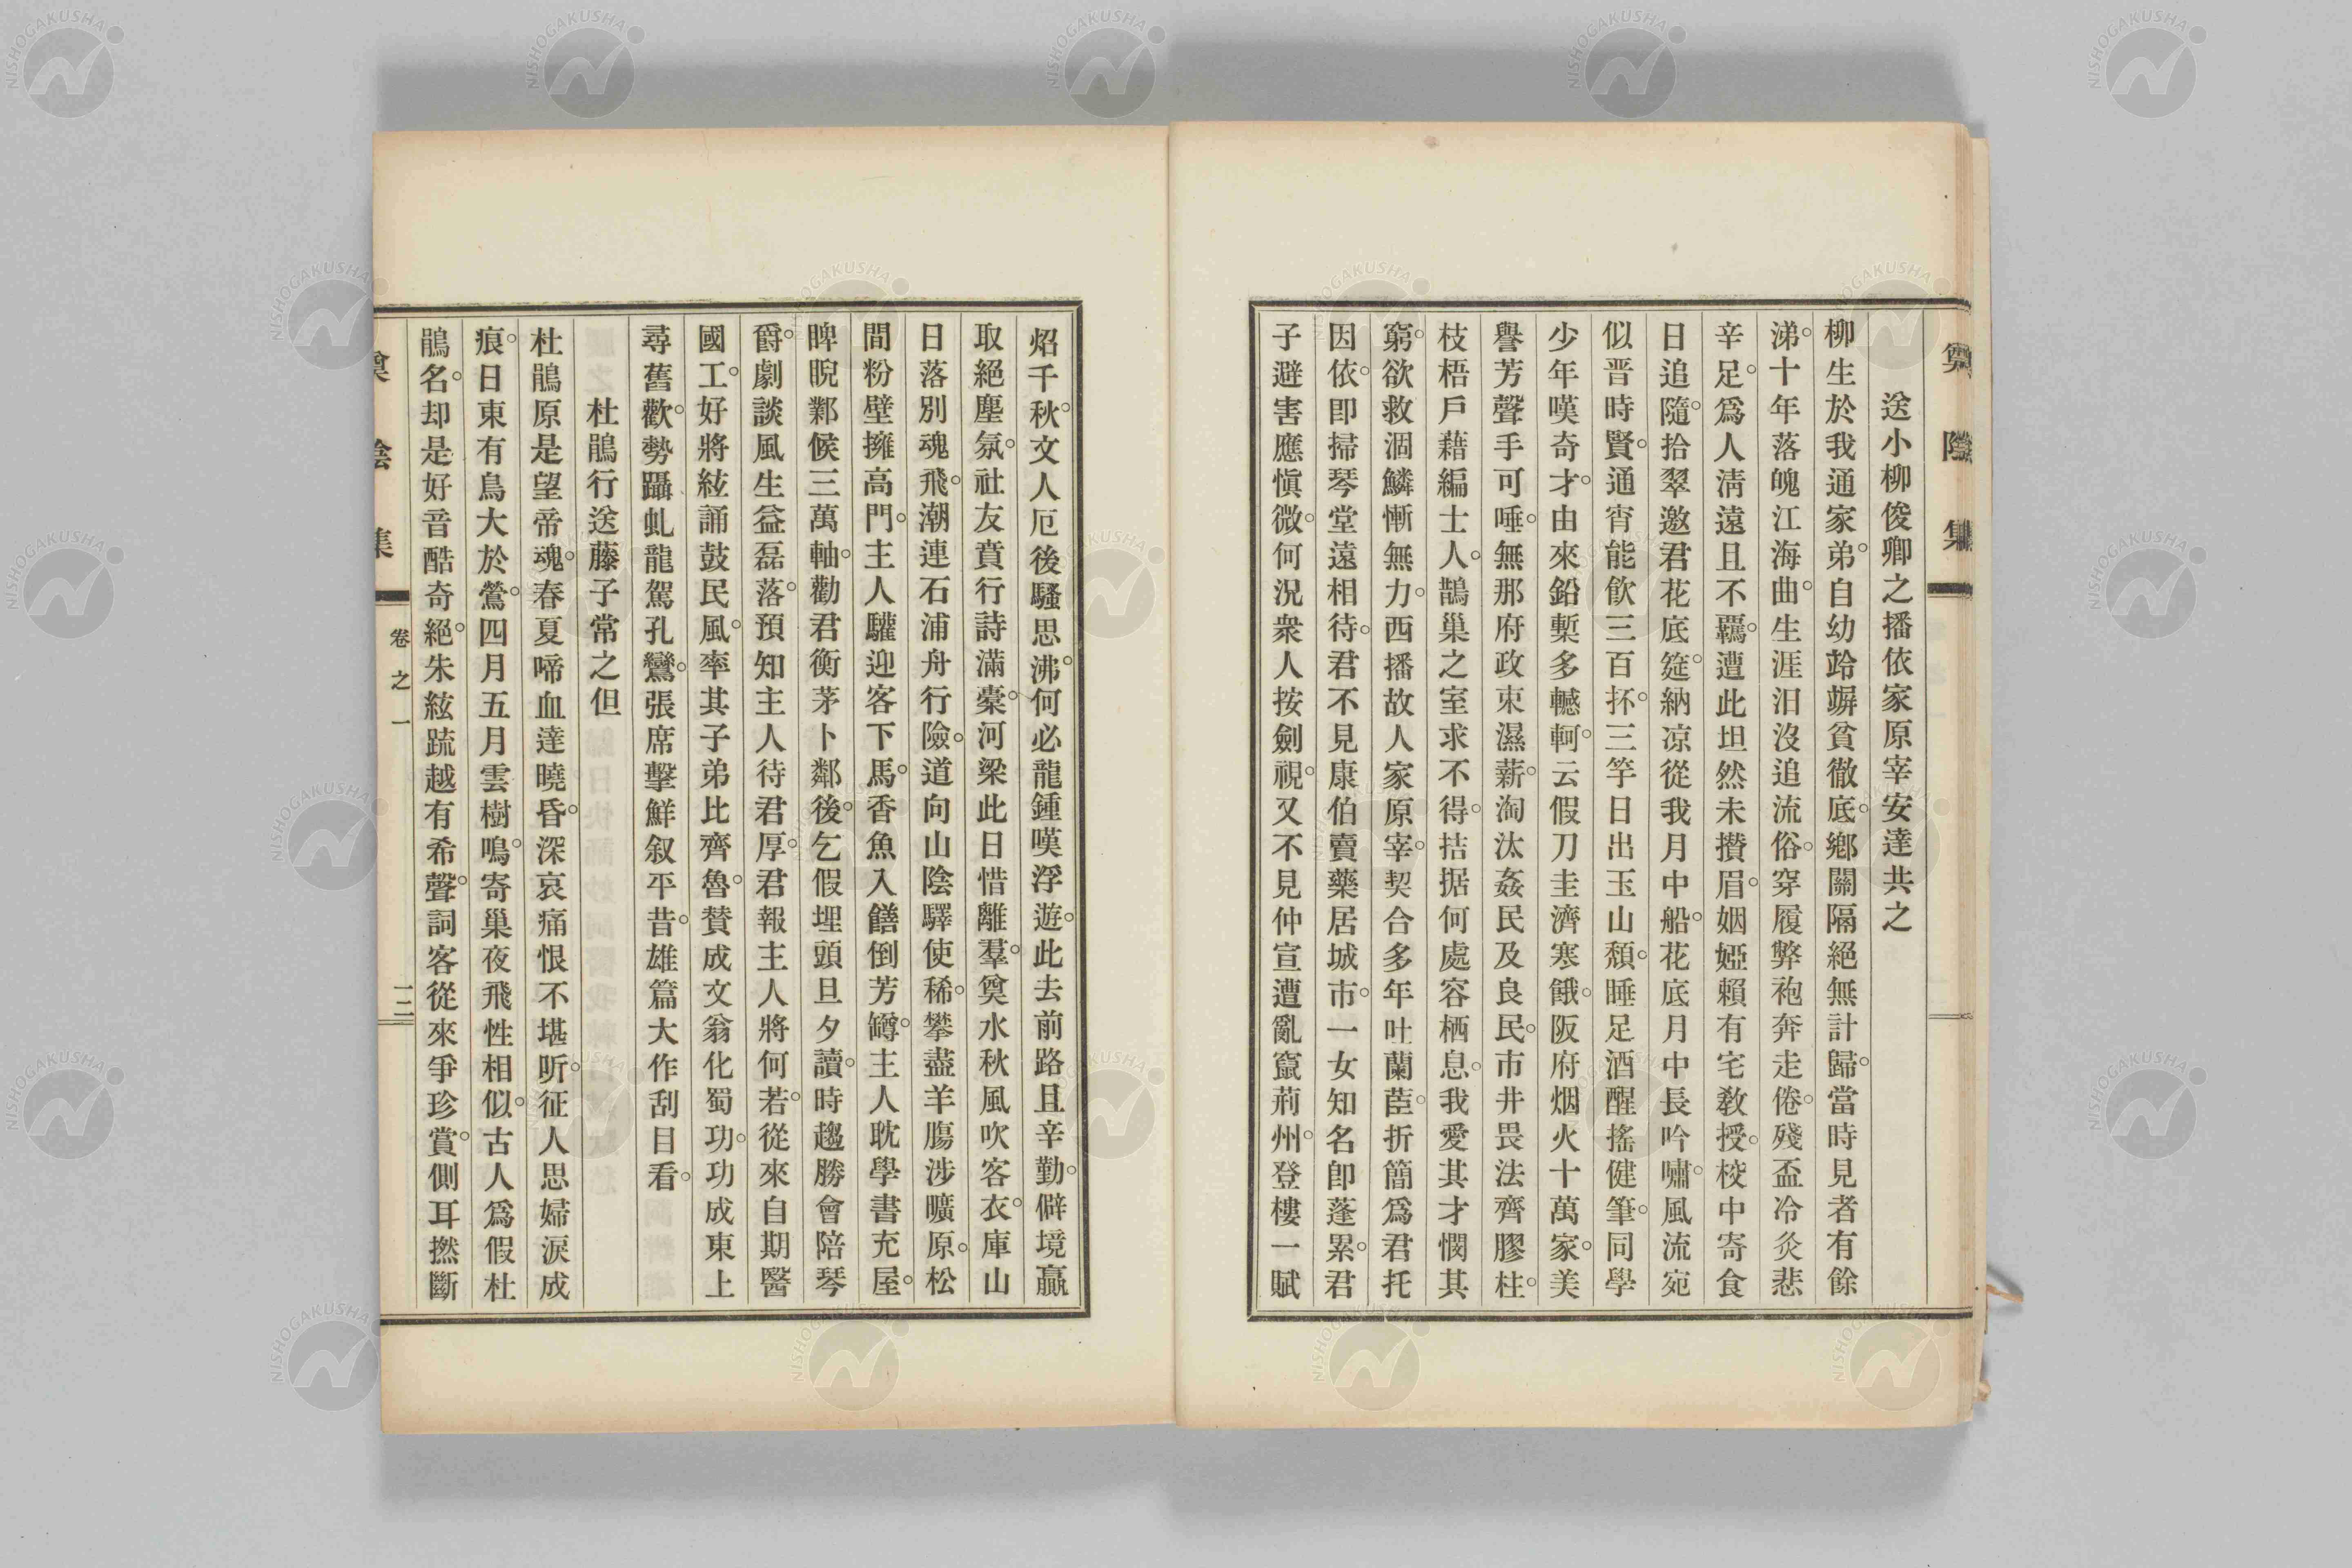 奠陰集
送小柳俊卿之播依家原宰安達共之
柳生於我通家弟。自幼跉竮貧徹底。鄉關隔絕無計歸。當時見者有餘
涕。十年落魄江海曲。生涯汩沒追流俗。穿履弊袍奔走倦。殘盃冷炙悲
辛足。爲人淸遠且不羈。遭此坦然未攢眉。姻婭賴有宅教授。校中寄食
日追隨。拾翠邀君花底筵。納凉從我月中船。花底月中長吟嘯。風流宛
似晋時賢。通宵能飮三百抔。三竿日出玉山頹。睡足酒醒搖健筆。同學
少年嘆奇才。由來鉛槧多轗軻。云假刀圭濟寒餓。阪府烟火十萬家。美
譽芳聲手可唾。無那府政束濕薪。淘汰姦民及良民。市井畏法齊膠柱。
枝梧戶藉編士人。鵲巢之室求不得。拮据何處容栖息。我愛其才憫其
窮。欲救涸鱗慚無力。西播故人家原宰。契合多年吐蘭茝。折簡爲君托
因依。卽掃琴堂遠相待。君不見康伯賣藥居城市。一女知名卽蓬累。君
子避害應愼微。何況衆人按劍視。又不見仲宣遭亂竄荊州。登樓一賦
焰千秋。文人厄後騷思沸。何必龍鍾嘆浮遊。此去前路且辛勤。僻境贏
取絕塵氛。社友賁行詩滿橐。河梁此日惜離羣。奠水秋風吹客衣。庫山
日落別魂飛。潮連石浦舟行險。道向山陰驛使稀。攀盡羊膓涉曠原。松
間粉壁擁高門。主人驩迎客下馬。香魚入饍倒芳罇。主人耽學書充屋。
睥睨鄴候三萬軸。勸君衡茅卜鄰後。乞假埋頭旦夕讀。時趨勝會陪琴
爵。劇談風生益磊落。預知主人待君厚。君報主人將何若。從來自期醫
國工。好將絃誦鼓民風。率其子弟比齊魯。賛成文翁化蜀功。功成東上
尋舊歡。勢躡虬龍駕孔鸞。張席擊鮮叙平昔。雄篇大作刮目看。
杜鵑行送藤子常之但
杜鵑原是望帝魂。春夏啼血達曉昏。深哀痛恨不堪听。征人思婦淚成
痕。日東有鳥大於鶯。四月五月雲樹鳴。寄巢夜飛性相似。古人爲假杜
鵑名。却是好音酷奇絕。朱絃疏越有希聲。詞客從來爭珍賞。側耳撚斷
奠陰集 卷之一 一二